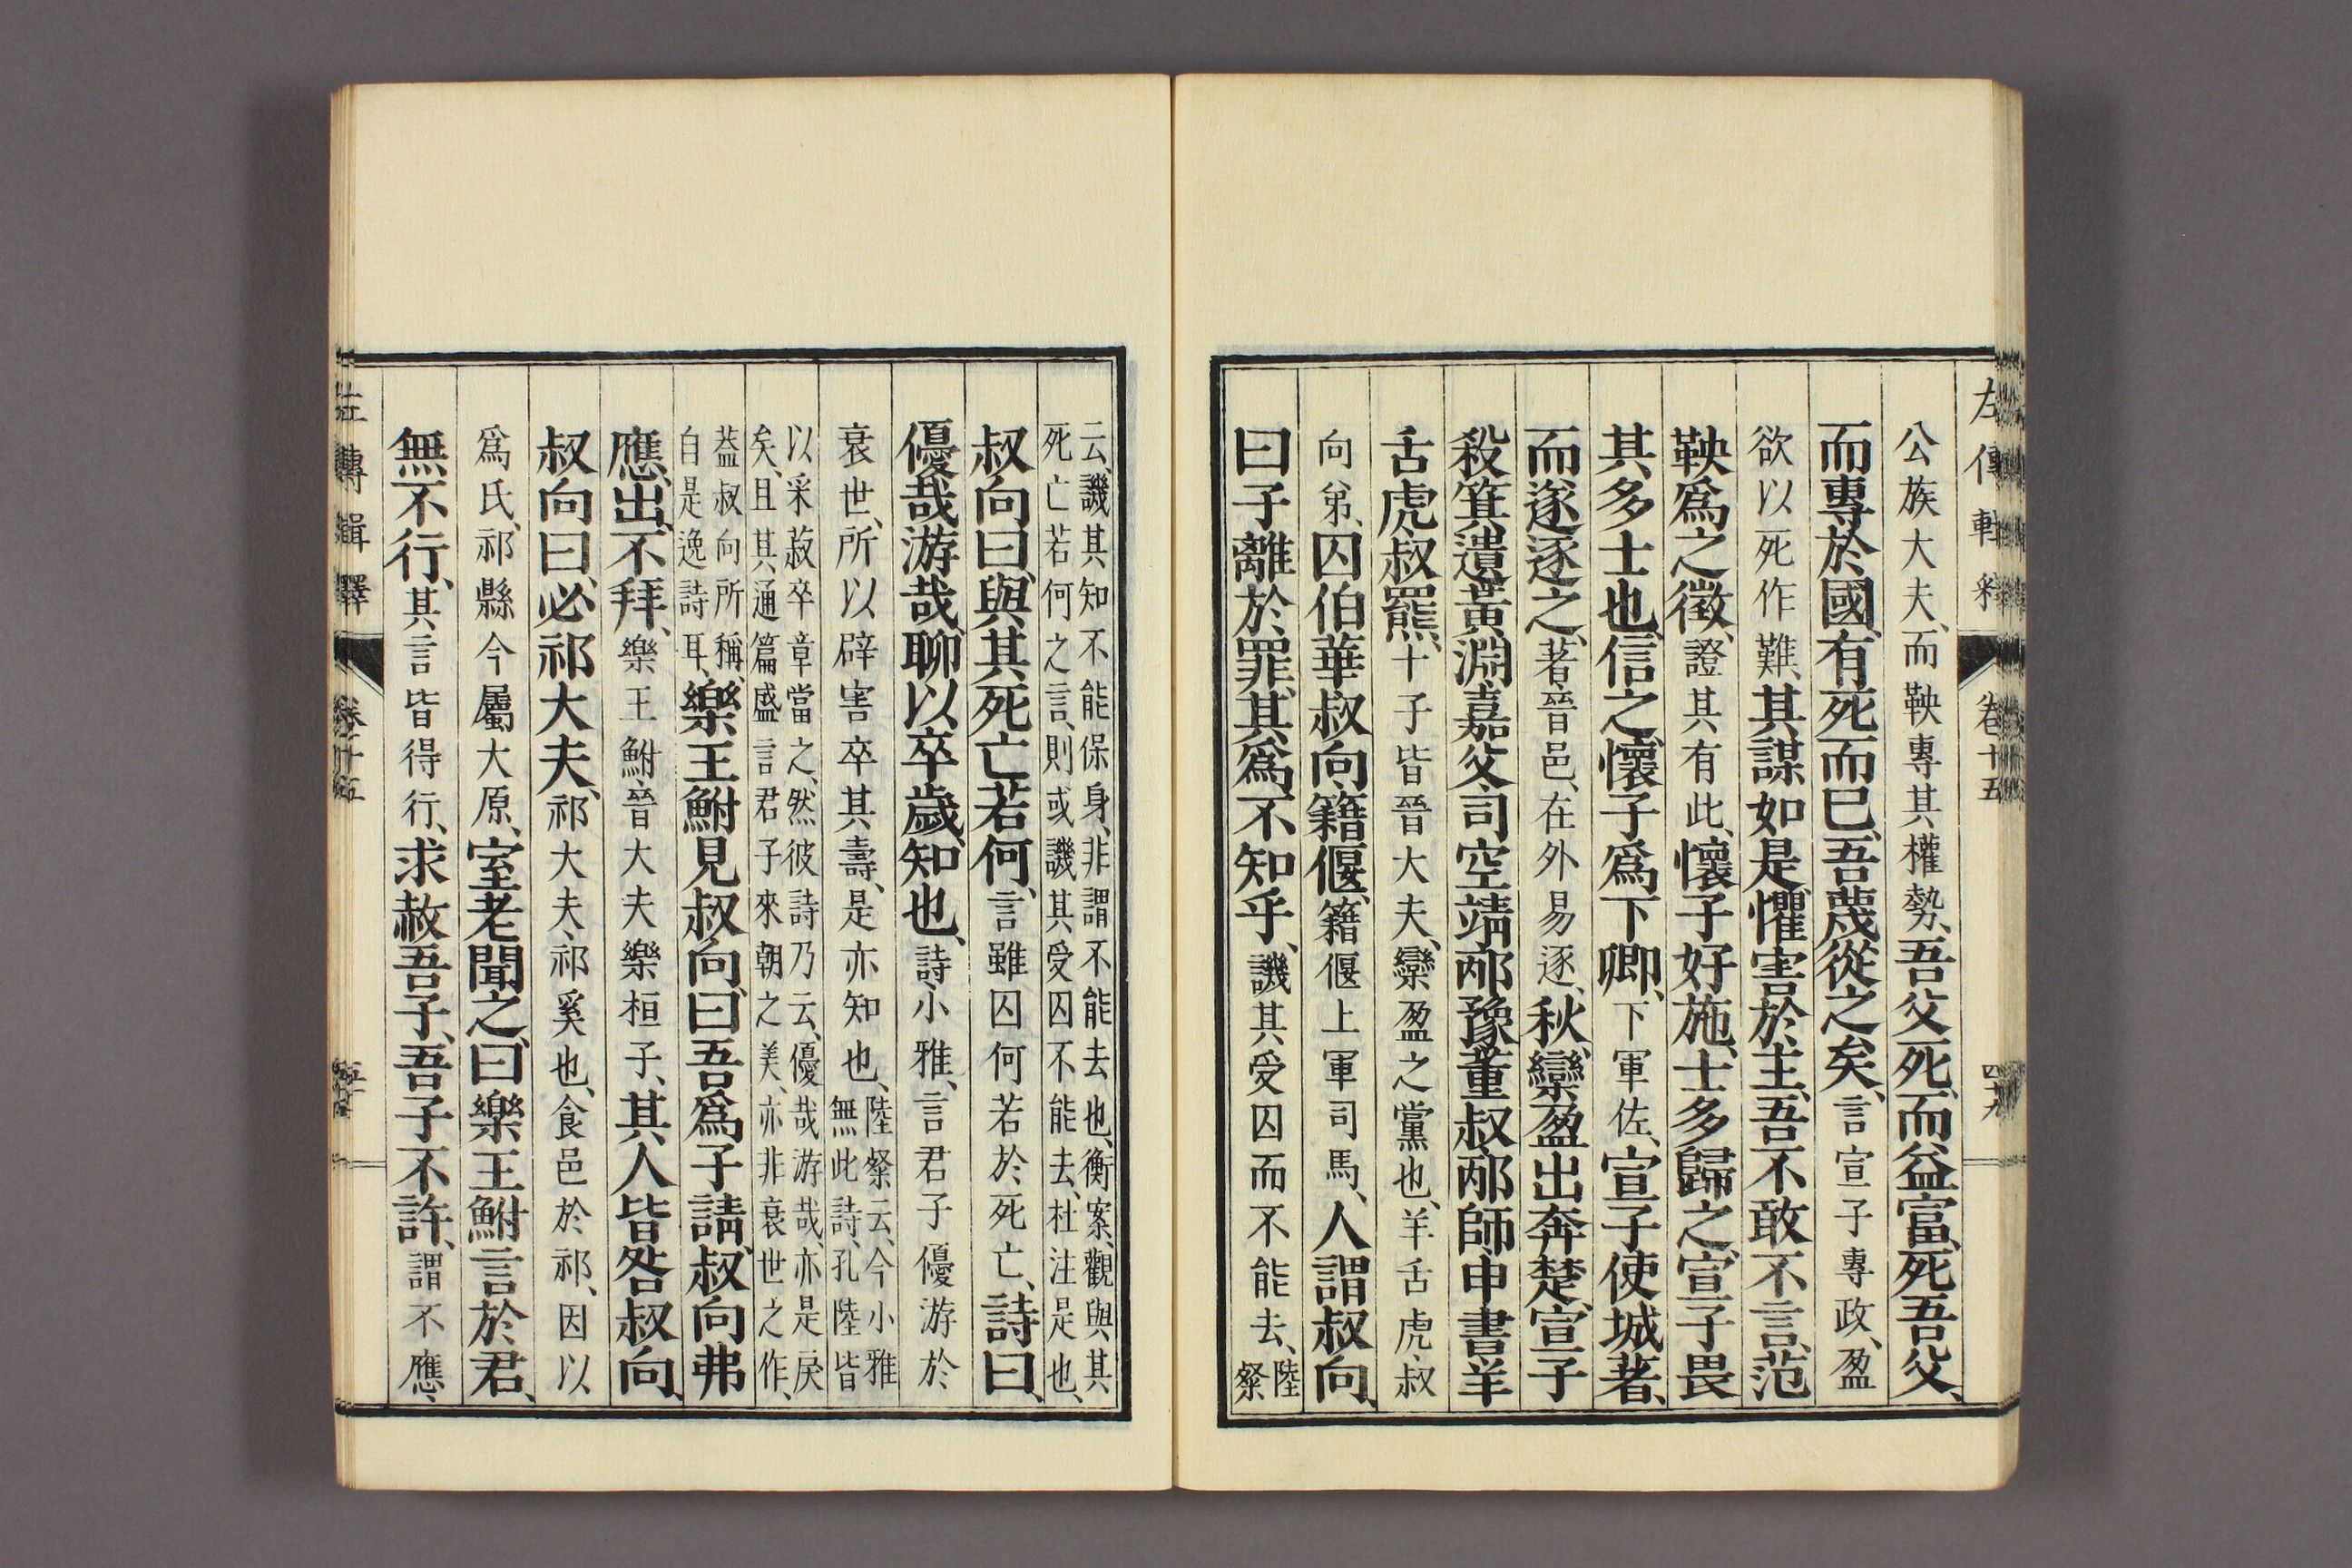 公族大夫、而鞅專其權勢、吾父死、而益富、死吾父、
而專於國、有死而已、吾蔑從之矣、言宣子專政、盈
欲以死作難、其謀如是、懼害於主、吾不敢不言、范
鞅爲之徵、證其有此、懷子好施、士多歸之、宣子畏
其多士也、信之、懷子爲下卿、下軍佐、宣子使城著、
而遂逐之、著、晉邑、在外易逐、秋、欒盈出奔楚、宣子
殺箕遺黃淵嘉父司空靖邴豫董叔邴師申書羊
舌虎叔羆、十子皆晉大夫、欒盈之黨也、羊舌虎、叔
向弟、囚伯華叔向籍偃、籍偃上軍司馬、人謂叔向
曰、子離於罪、其爲不知乎、譏其受囚而不能去、陸
粲
云、譏其知不能保身、非謂不能去也、衡案、觀與其
死亡若何之言、則或譏其受囚不能去、杜注是也、
叔向曰、與其死亡若何、言雖囚何若於死亡、詩曰、
優哉游哉、聊以卒歲、知也、詩小雅、言君子優游於
衰世、所以辟害卒其壽、是亦知也、陸粲云、今小雅
無此詩、孔陸皆
以采菽卒章當之、然彼詩乃云、優哉游哉、亦是戾
矣、且其通篇盛言君子來朝之美、亦非衰世之作、
蓋叔向所稱、
自是逸詩耳、樂王鮒見叔向曰、吾爲子請、叔向弗
應、出、不拜、樂王鮒、晉大夫樂桓子、其人皆咎叔向、
叔向曰、必祁大夫、祁大夫、祁奚也、食邑於祁、因以
爲氏、祁縣今屬大原、室老聞之曰、樂王鮒言於君、
無不行、其言皆得行、求赦吾子、吾子不許、謂不應、
左傳輯釋
卷十五